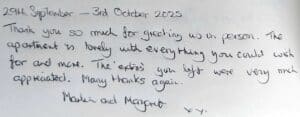 29th September — 3rd October 2025
Thank you so much for greeting us in person. The
apartment is lovely with everything you could wish
for and more. The 'extras' you left were very much
appreciated. Many thanks again.
Martin and Margaret
xx.